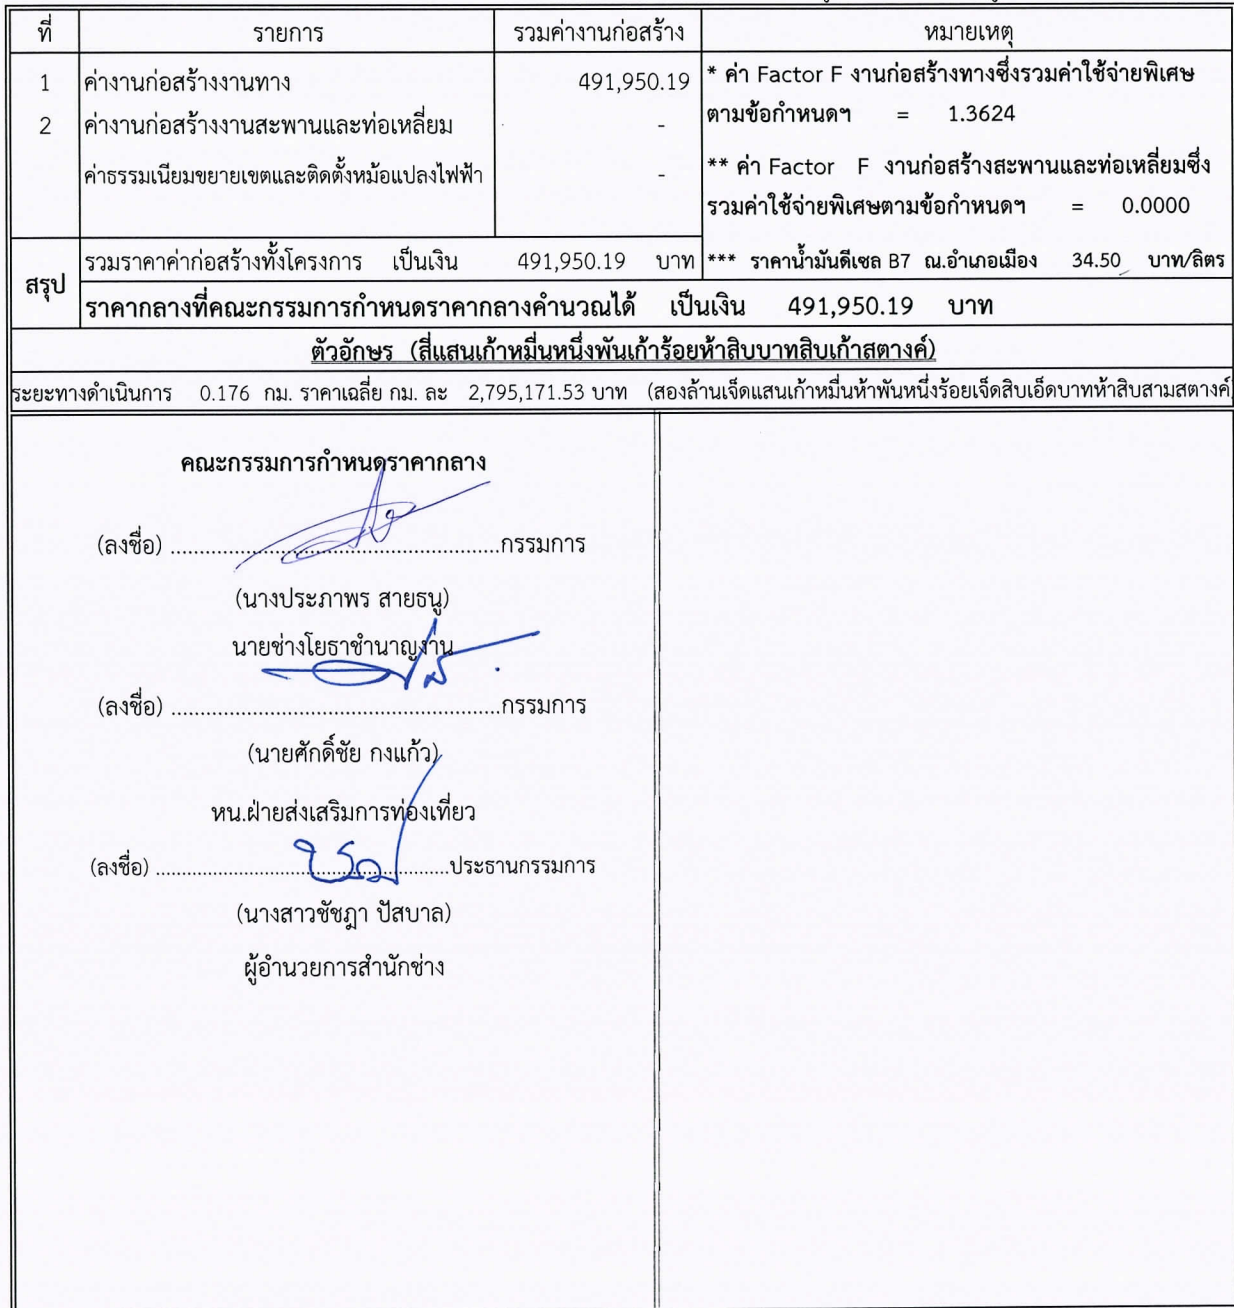 ที่ รายการ รวมค่างานก่อสร้าง หมายเหตุ
1 ค่างานก่อสร้างงานทาง 491,950.19 * ค่า Factor F งานก่อสร้างทางซึ่งรวมค่าใช้จ่ายพิเศษ
2 ค่างานก่อสร้างงานสะพานและท่อเหลี่ยม - ตามข้อกำหนดฯ = 1.3624
ค่าธรรมเนียมขยายเขตและติดตั้งหม้อแปลงไฟฟ้า - ** ค่า Factor F งานก่อสร้างสะพานและท่อเหลี่ยมซึ่ง
รวมค่าใช้จ่ายพิเศษตามข้อกำหนดฯ = 0.0000
สรุป รวมราคาค่าก่อสร้างทั้งโครงการ เป็นเงิน 491,950.19 บาท *** ราคาน้ำมันดีเซล B7 ณ.อำเภอเมือง 34.50 บาท/ลิตร
ราคากลางที่คณะกรรมการกำหนดราคากลางคำนวณได้ เป็นเงิน 491,950.19 บาท
ตัวอักษร (สี่แสนเก้าหมื่นหนึ่งพันเก้าร้อยห้าสิบบาทสิบเก้าสตางค์)
ระยะทางดำเนินการ 0.176 กม. ราคาเฉลี่ย กม. ละ 2,795,171.53 บาท (สองล้านเจ็ดแสนเก้าหมื่นห้าพันหนึ่งร้อยเจ็ดสิบเอ็ดบาทห้าสิบสามสตางค์)
คณะกรรมการกำหนดราคากลาง
(ลงชื่อ) ..........................................................กรรมการ
(นางประภาพร สายธนู)
นายช่างโยธาชำนาญงาน
(ลงชื่อ) ..........................................................กรรมการ
(นายศักดิ์ชัย กงแก้ว)
หน.ฝ่ายส่งเสริมการท่องเที่ยว
(ลงชื่อ) ..........................................................ประธานกรรมการ
(นางสาวชัชฎา ปัสบาล)
ผู้อำนวยการสำนักช่าง